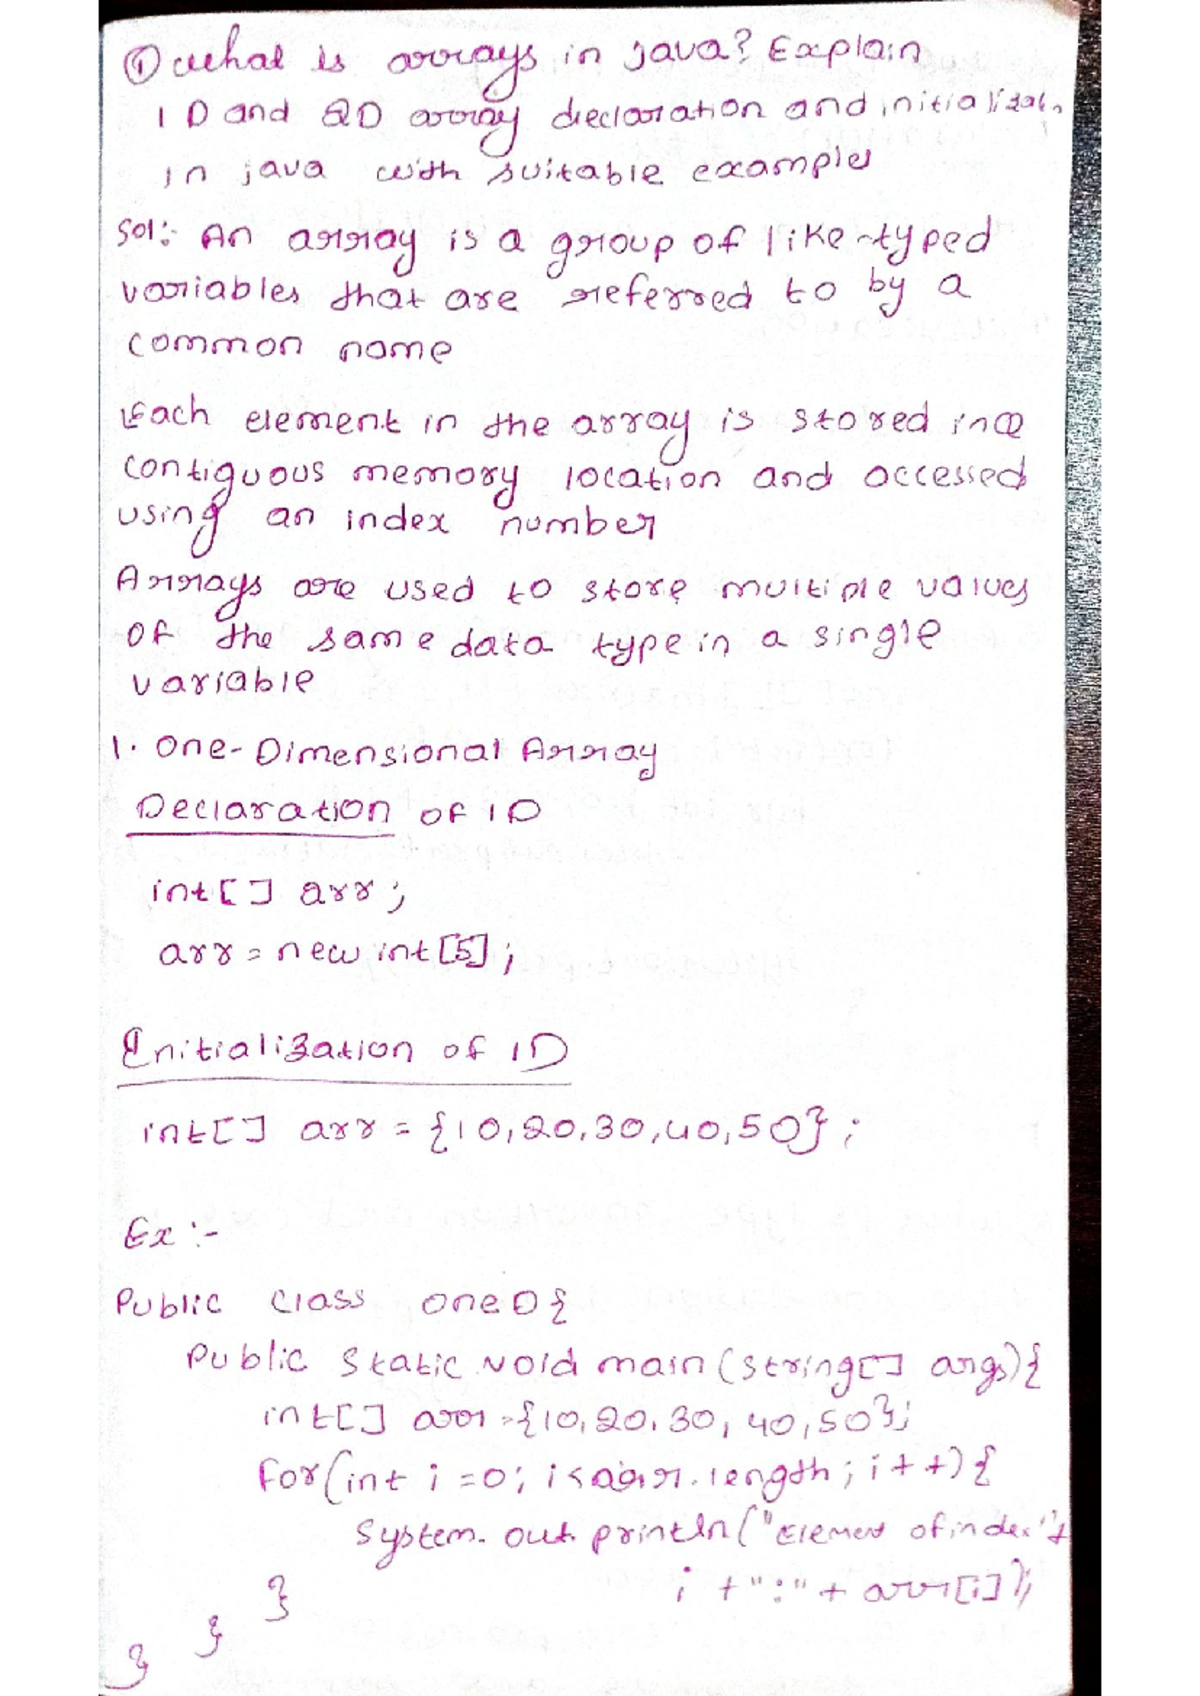 ① what is arrays in java? Explain
1D and 2D array declaration and initializatn
in java with suitable examples
Sol:- An array is a group of like-typed
variables that are referred to by a
common name
Each element in the array is stored in a
contiguous memory location and accessed
using an index number
Arrays are used to store multiple values
of the same data type in a single
variable
1. One-Dimensional Array
Declaration of 1D
int[] arr;
arr = new int[5];
Initialization of 1D
int[] arr = {10,20,30,40,50};
Ex:-
Public class oneD{
Public static void main(string[] args){
int[] arr={10,20,30,40,50};
for(int i=0; i<arr.length; i++){
System.out.println("Element of index"+
i +":"+ arr[i]);
}
}
}